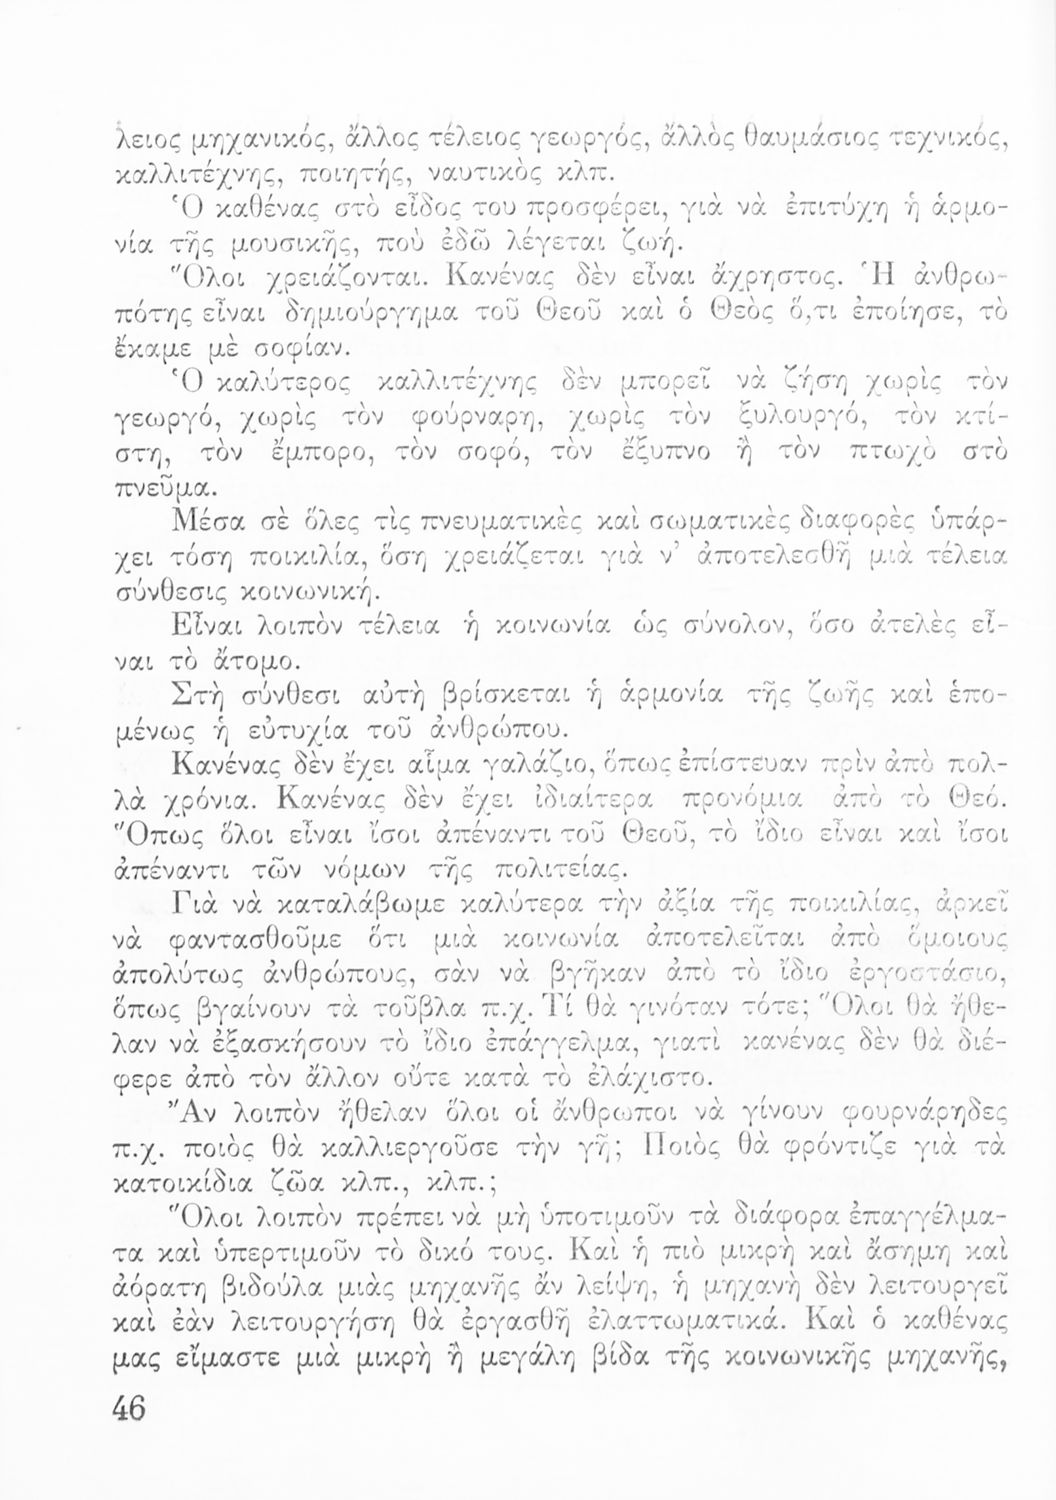 λειος μηχανικός, ἄλλος τέλειος γεωργός, ἄλλὸς θαυμάσιος τεχνικός,
καλλιτέχνης, ποιητής, ναυτικὸς κλπ.
Ὁ καθένας στὸ εἶδος του προσφέρει, γιὰ νὰ ἐπιτύχη ἡ ἁρμο-
νία τῆς μουσικῆς, ποὺ ἐδῶ λέγεται ζωή.
Ὅλοι χρειάζονται. Κανένας δὲν εἶναι ἄχρηστος. Ἡ ἀνθρω-
πότης εἶναι δημιούργημα τοῦ Θεοῦ καὶ ὁ Θεὸς ὅ,τι ἐποίησε, τὸ
ἔκαμε μὲ σοφίαν.
Ὁ καλύτερος καλλιτέχνης δὲν μπορεῖ νὰ ζήση χωρὶς τὸν
γεωργό, χωρὶς τὸν φούρναρη, χωρὶς τὸν ξυλουργό, τὸν κτί-
στη, τὸν ἔμπορο, τὸν σοφό, τὸν ἔξυπνο ἢ τὸν πτωχὸ στὸ
πνεῦμα.
Μέσα σὲ ὅλες τὶς πνευματικὲς καὶ σωματικὲς διαφορὲς ὑπάρ-
χει τόση ποικιλία, ὅση χρειάζεται γιὰ ν' ἀποτελεσθῆ μιὰ τέλεια
σύνθεσις κοινωνική.
Εἶναι λοιπὸν τέλεια ἡ κοινωνία ὡς σύνολον, ὅσο ἀτελὲς εἶ-
ναι τὸ ἄτομο.
Στὴ σύνθεσι αὐτὴ βρίσκεται ἡ ἁρμονία τῆς ζωῆς καὶ ἑπο-
μένως ἡ εὐτυχία τοῦ ἀνθρώπου.
Κανένας δὲν ἔχει αἷμα γαλάζιο, ὅπως ἐπίστευαν πρὶν ἀπὸ πολ-
λὰ χρόνια. Κανένας δὲν ἔχει ἰδιαίτερα προνόμια ἀπὸ τὸ Θεό.
Ὅπως ὅλοι εἶναι ἴσοι ἀπέναντι τοῦ Θεοῦ, τὸ ἴδιο εἶναι καὶ ἴσοι
ἀπέναντι τῶν νόμων τῆς πολιτείας.
Γιὰ νὰ καταλάβωμε καλύτερα τὴν ἀξία τῆς ποικιλίας, ἀρκεῖ
νὰ φαντασθοῦμε ὅτι μιὰ κοινωνία ἀποτελεῖται ἀπὸ ὅμοιους
ἀπολύτως ἀνθρώπους, σὰν νὰ βγῆκαν ἀπὸ τὸ ἴδιο ἐργοστάσιο,
ὅπως βγαίνουν τὰ τοῦβλα π.χ. Τί θὰ γινόταν τότε; Ὅλοι θὰ ἤθε-
λαν νὰ ἐξασκήσουν τὸ ἴδιο ἐπάγγελμα, γιατὶ κανένας δὲν θὰ διέ-
φερε ἀπὸ τὸν ἄλλον οὔτε κατὰ τὸ ἐλάχιστο.
Ἂν λοιπὸν ἤθελαν ὅλοι οἱ ἄνθρωποι νὰ γίνουν φουρνάρηδες
π.χ. ποιὸς θὰ καλλιεργοῦσε τὴν γῆ; Ποιὸς θὰ φρόντιζε γιὰ τὰ
κατοικίδια ζῶα κλπ., κλπ.;
Ὅλοι λοιπὸν πρέπει νὰ μὴ ὑποτιμοῦν τὰ διάφορα ἐπαγγέλμα-
τα καὶ ὑπερτιμοῦν τὸ δικό τους. Καὶ ἡ πιὸ μικρὴ καὶ ἄσημη καὶ
ἀόρατη βιδούλα μιὰς μηχανῆς ἂν λείψη, ἡ μηχανὴ δὲν λειτουργεῖ
καὶ ἐὰν λειτουργήση θὰ ἐργασθῆ ἐλαττωματικά. Καὶ ὁ καθένας
μας εἴμαστε μιὰ μικρὴ ἢ μεγάλη βίδα τῆς κοινωνικῆς μηχανῆς,
46